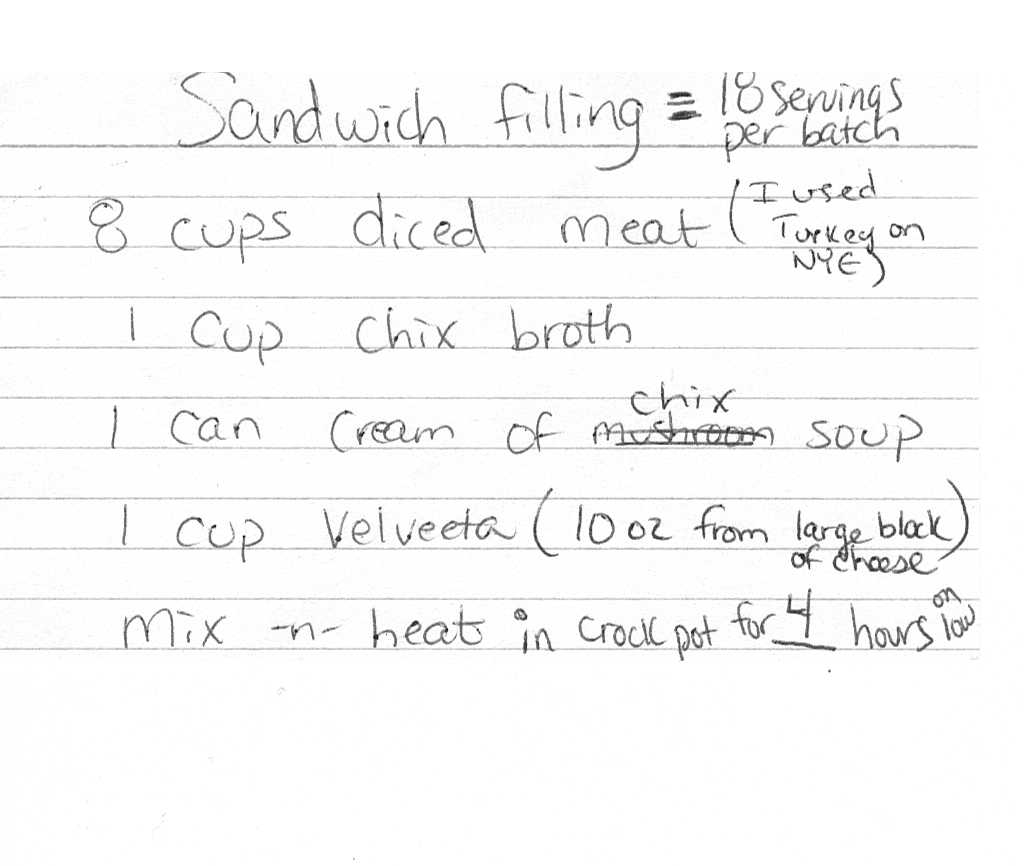 Sandwich filling = 18 servings per batch
8 cups diced meat (I used Turkey on NYE)
1 cup chix broth
1 can cream of mushroom chix soup
1 cup Velveeta (10 oz from large block of cheese)
mix -n- heat in crock pot for 4 hours on low